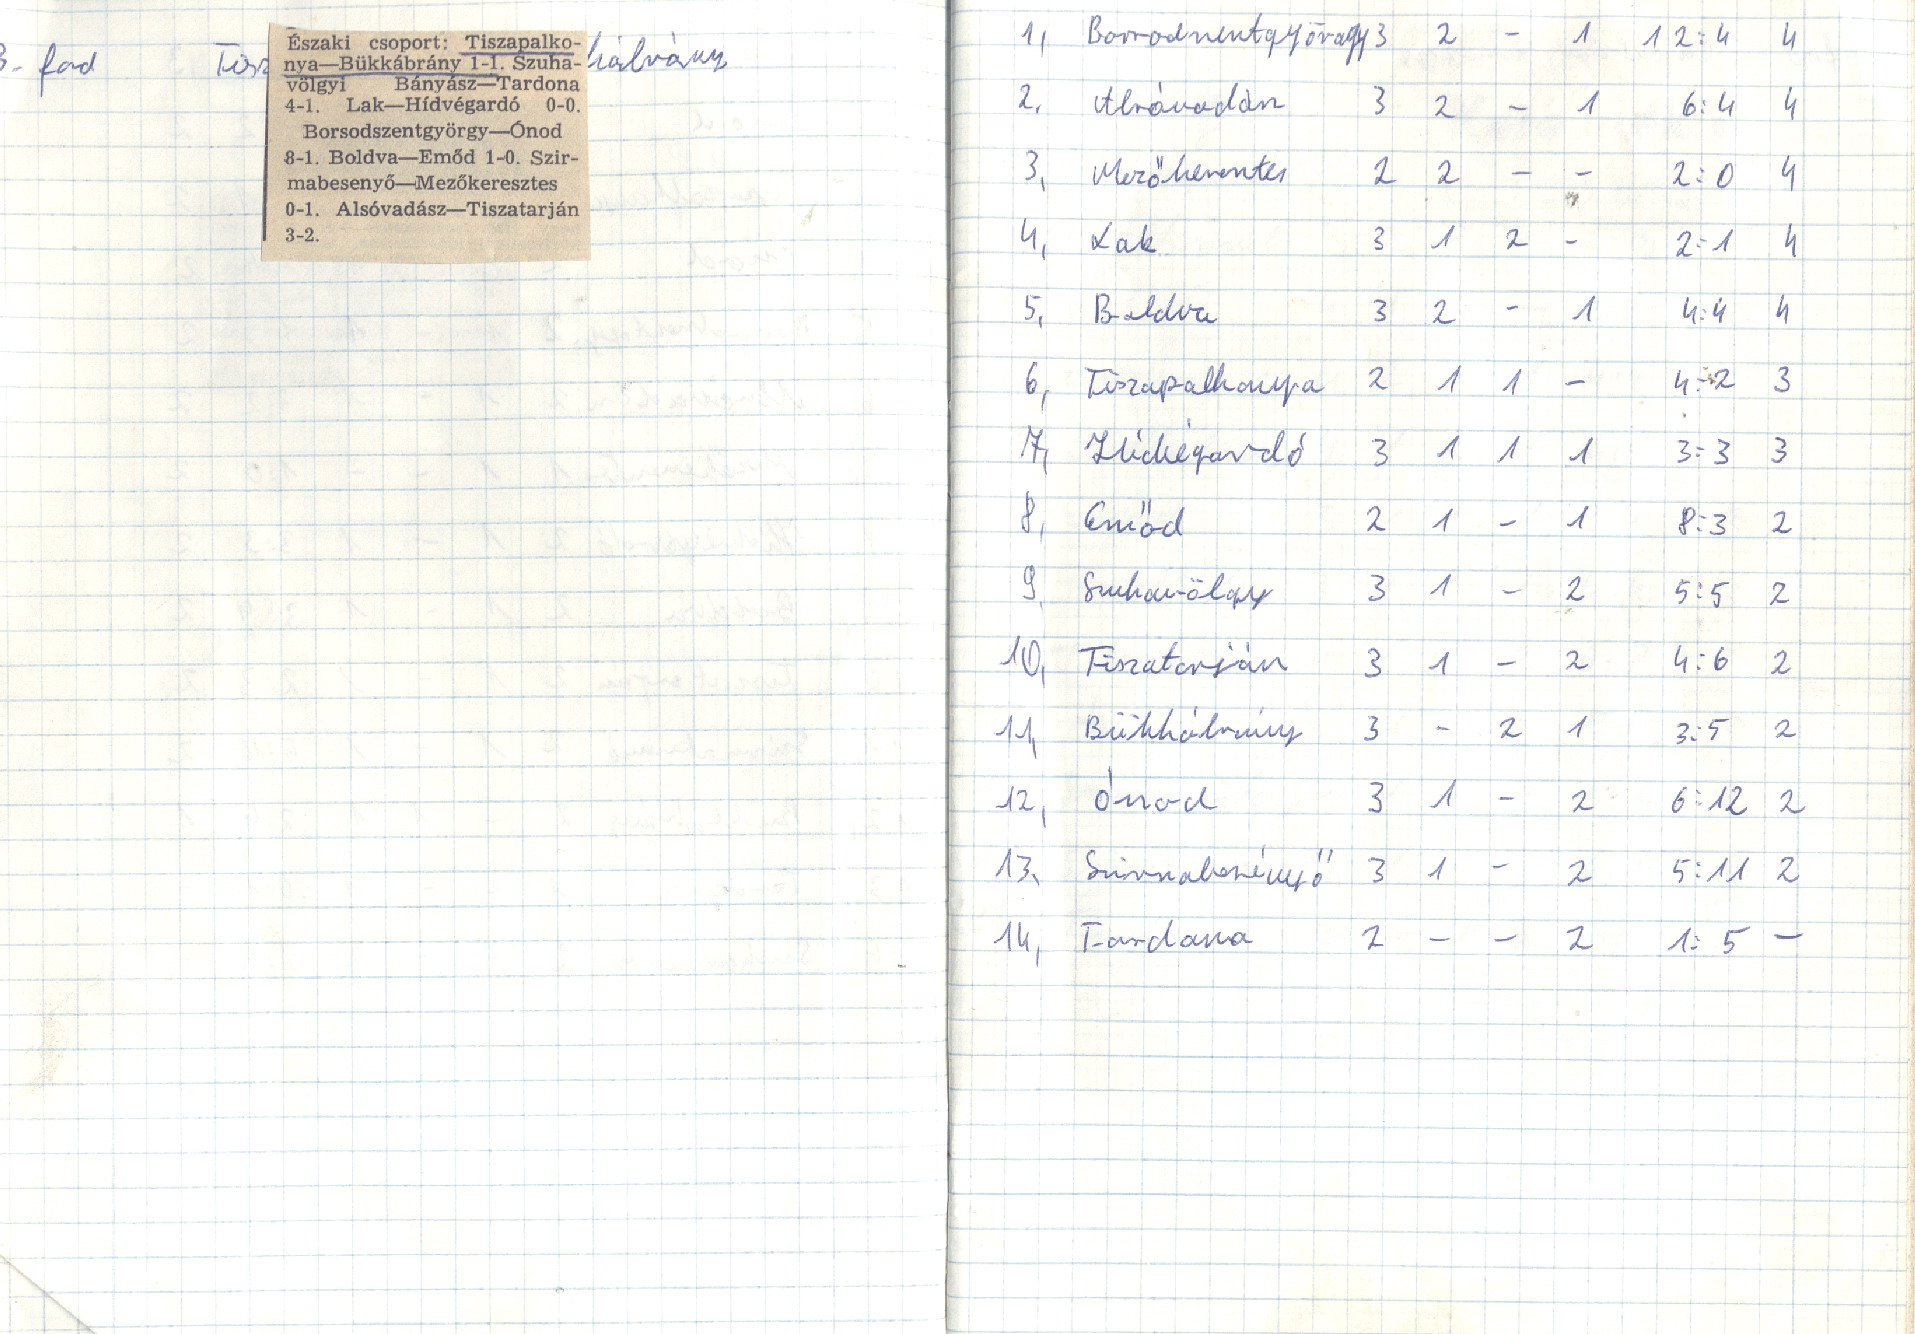 3. ford
Északi csoport: Tiszapalko-
nya—Bükkábrány 1-1. Szuha-
völgyi Bányász—Tardona
4-1. Lak—Hídvégardó 0-0.
Borsodszentgyörgy—Ónod
8-1. Boldva—Emőd 1-0. Szir-
mabesenyő—Mezőkeresztes
0-1. Alsóvadász—Tiszatarján
3-2.
1, Borsodszentgyörgy 3 2 - 1 12:4 4
2. Alsóvadász 3 2 - 1 6:4 4
3, Mezőkeresztes 2 2 - - 2:0 4
4, Lak 3 1 2 - 2:1 4
5, Boldva 3 2 - 1 4:4 4
6, Tiszapalkonya 2 1 1 - 4:2 3
7, Hídvégardó 3 1 1 1 3:3 3
8, Emőd 2 1 - 1 8:3 2
9, Szuhavölgy 3 1 - 2 5:5 2
10, Tiszatarján 3 1 - 2 4:6 2
11, Bükkábrány 3 - 2 1 3:5 2
12, Ónod 3 1 - 2 6:12 2
13. Szirmabesényő 3 1 - 2 5:11 2
14, Tardona 2 - - 2 1:5 -